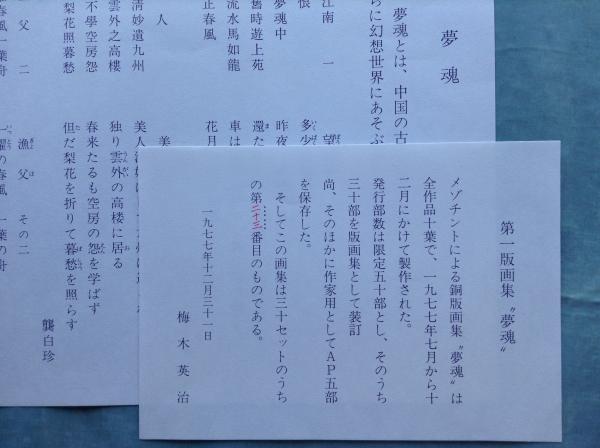 第一版画集〝夢魂〟
メゾチントによる銅版画集〝夢魂〟は
全作品十葉で、一九七七年七月から十
二月にかけて製作された。
発行部数は限定五十部とし、そのうち
三十部を版画集として装訂
尚、そのほかに作家用としてAP五部
を保存した。
そしてこの画集は三十セットのうち
の第二十三番目のものである。
一九七七年十二月三十一日
梅木英治
夢魂
夢魂とは、中国の古
らに幻想世界にあそぶ
江南 一 望
恨 多少
夢魂中 昨夜
舊時遊上苑 還た
流水馬如龍 車は
正春風 花月
人 美
清妙遺九州 美人
雲外之高樓 独り雲外の高楼に居る
不學空房怨 春来たるも空房の怨を学ばず
梨花照暮愁 但だ梨花を折りて暮愁を照らす
龔白珍
父 二 漁父 その二
春風一葉舟 一櫂の春風 一葉の舟